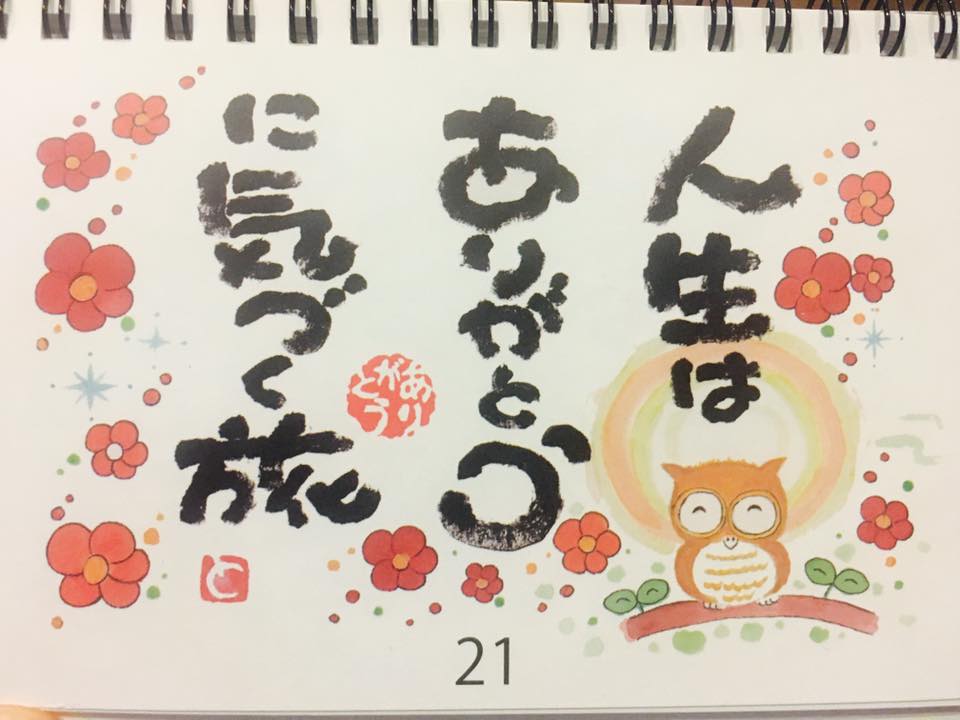 人生は
ありがとう
に気づく旅
ありがとう
と
21